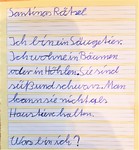 Santinos Rätsel
Ich bin ein Säugetier.
Ich wohne in Bäumen
oder in Höhlen. Sie sind
süß und schwarz. Man
kann sie nicht als
Haustier halten.
Was bin ich?